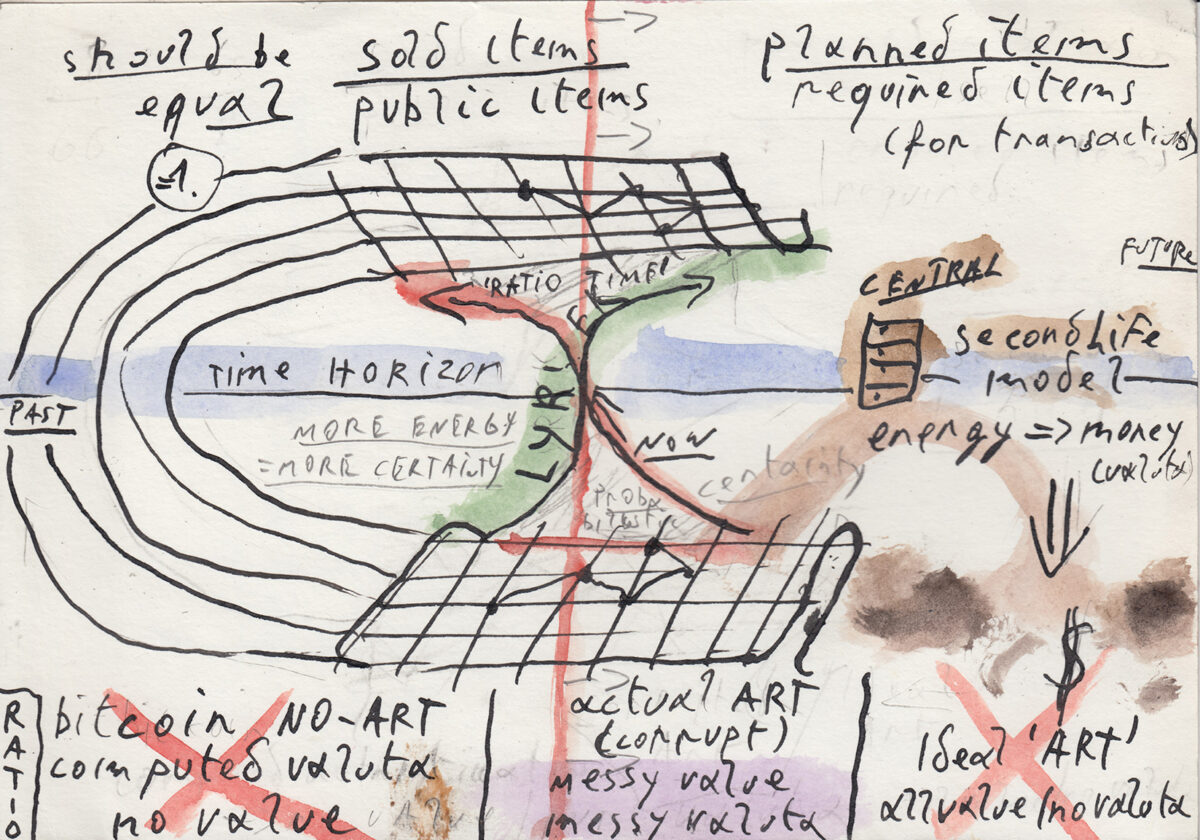 should be
equal
sold items
public items
planned items
required items
(for transactions)
=1.
'RATIO TIME'
FUTURE
CENTRAL
secondLife
model
Time Horizon
LYRI
PAST
MORE ENERGY
=MORE CERTAITY
NOW
centainity
energy => money
(valuta)
$
RATIO
bitcoin NO-ART
computed valuta
no value
actual ART
(corrupt)
messy value
messy valuta
Ideal 'ART'
all value/no valuta